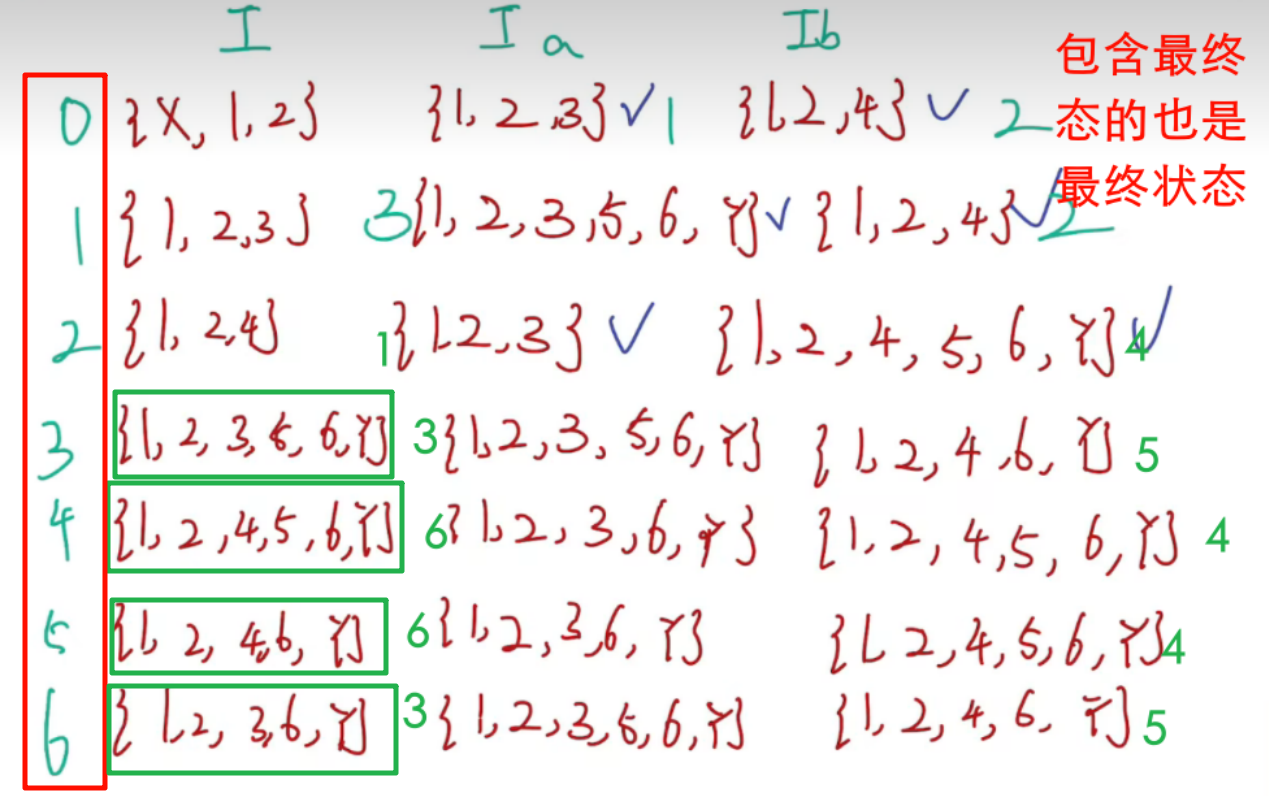 I Ia Ib
包含最终
态的也是
最终状态
0 {X, 1, 2} {1, 2, 3} ✓ 1 {1, 2, 4} ✓ 2
1 {1, 2, 3} 3 {1, 2, 3, 5, 6, Y} ✓ {1, 2, 4} ✓ 2
2 {1, 2, 4} 1 {1, 2, 3} ✓ {1, 2, 4, 5, 6, Y} ✓ 4
3 {1, 2, 3, 5, 6, Y} 3 {1, 2, 3, 5, 6, Y} {1, 2, 4, 6, Y} 5
4 {1, 2, 4, 5, 6, Y} 6 {1, 2, 3, 6, Y} {1, 2, 4, 5, 6, Y} 4
5 {1, 2, 4, 6, Y} 6 {1, 2, 3, 6, Y} {1, 2, 4, 5, 6, Y} 4
6 {1, 2, 3, 6, Y} 3 {1, 2, 3, 5, 6, Y} {1, 2, 4, 6, Y} 5